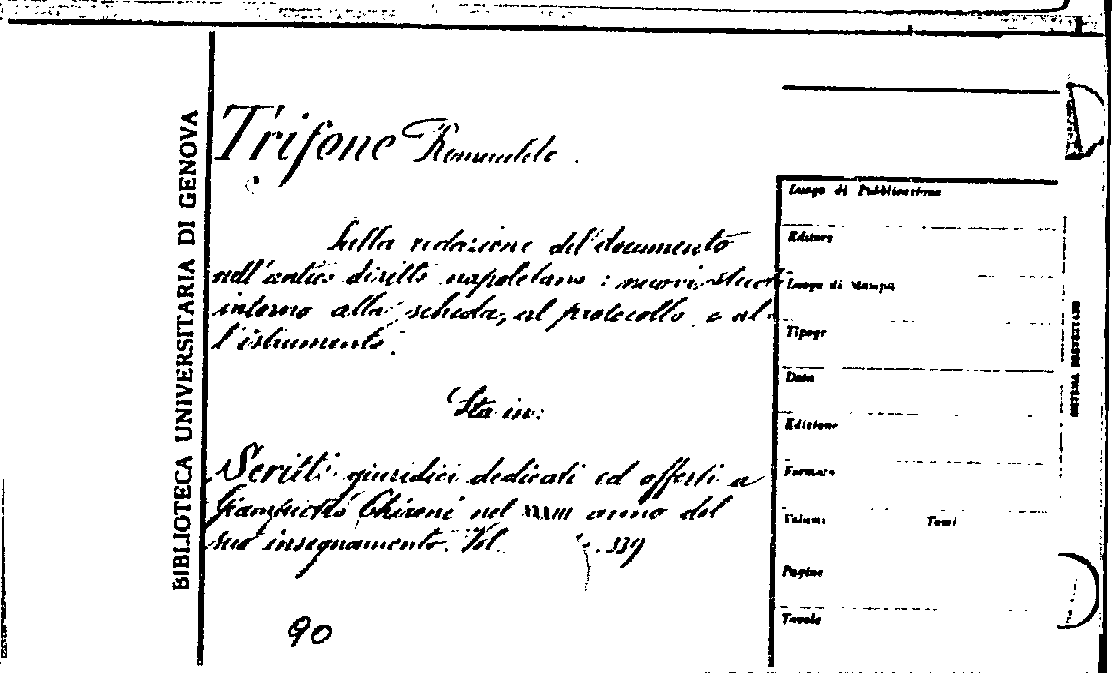 BIBLIOTECA UNIVERSITARIA DI GENOVA
Trifone Romualdo.
Sulla redazione del documento
nell'antico diritto napoletano: nuovi studi
intorno alla scheda, al protocollo e al-
l'istrumento.
Sta in:
Scritti giuridici dedicati ed offerti a
Giampietro Chironi nel XXXIII anno del
suo insegnamento. Vol. 339
90
Luogo di Pubblicazione
Editore
Luogo di stampa
Tipogr
Data
Edizione
Formato
Volumi Tomi
Pagine
Tavole